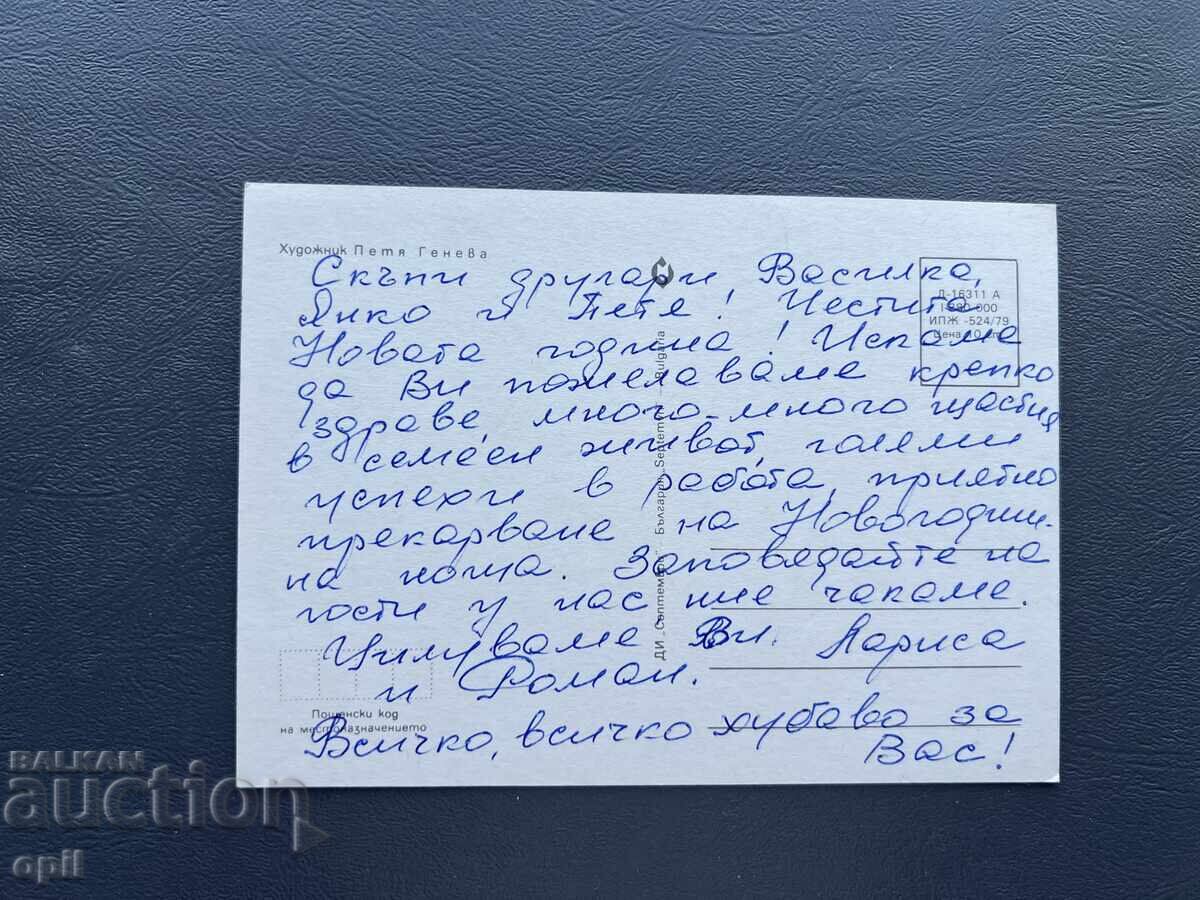 Художник Петя Генева
Скъпи другари, Василка,
Янко и Петя! Честита
Новата година! Искаме
да Ви пожелаваме крепко
здраве, много-много щастия
в семеен живот, големи
успехи в работа, приятно
прекарване на Новогодиш-
на нощ. Заповядайте на
гости у нас ние чакаме.
Цилуваме Ви. Лариса
и Роман.
Всичко, всичко хубаво за
Вас!
Д-16311 А
ИПЖ -524/79
ДИ „Септември“ България „Septemvri“ Bulgaria
Пощенски код
на местоназначението
BALKAN
auction
opil